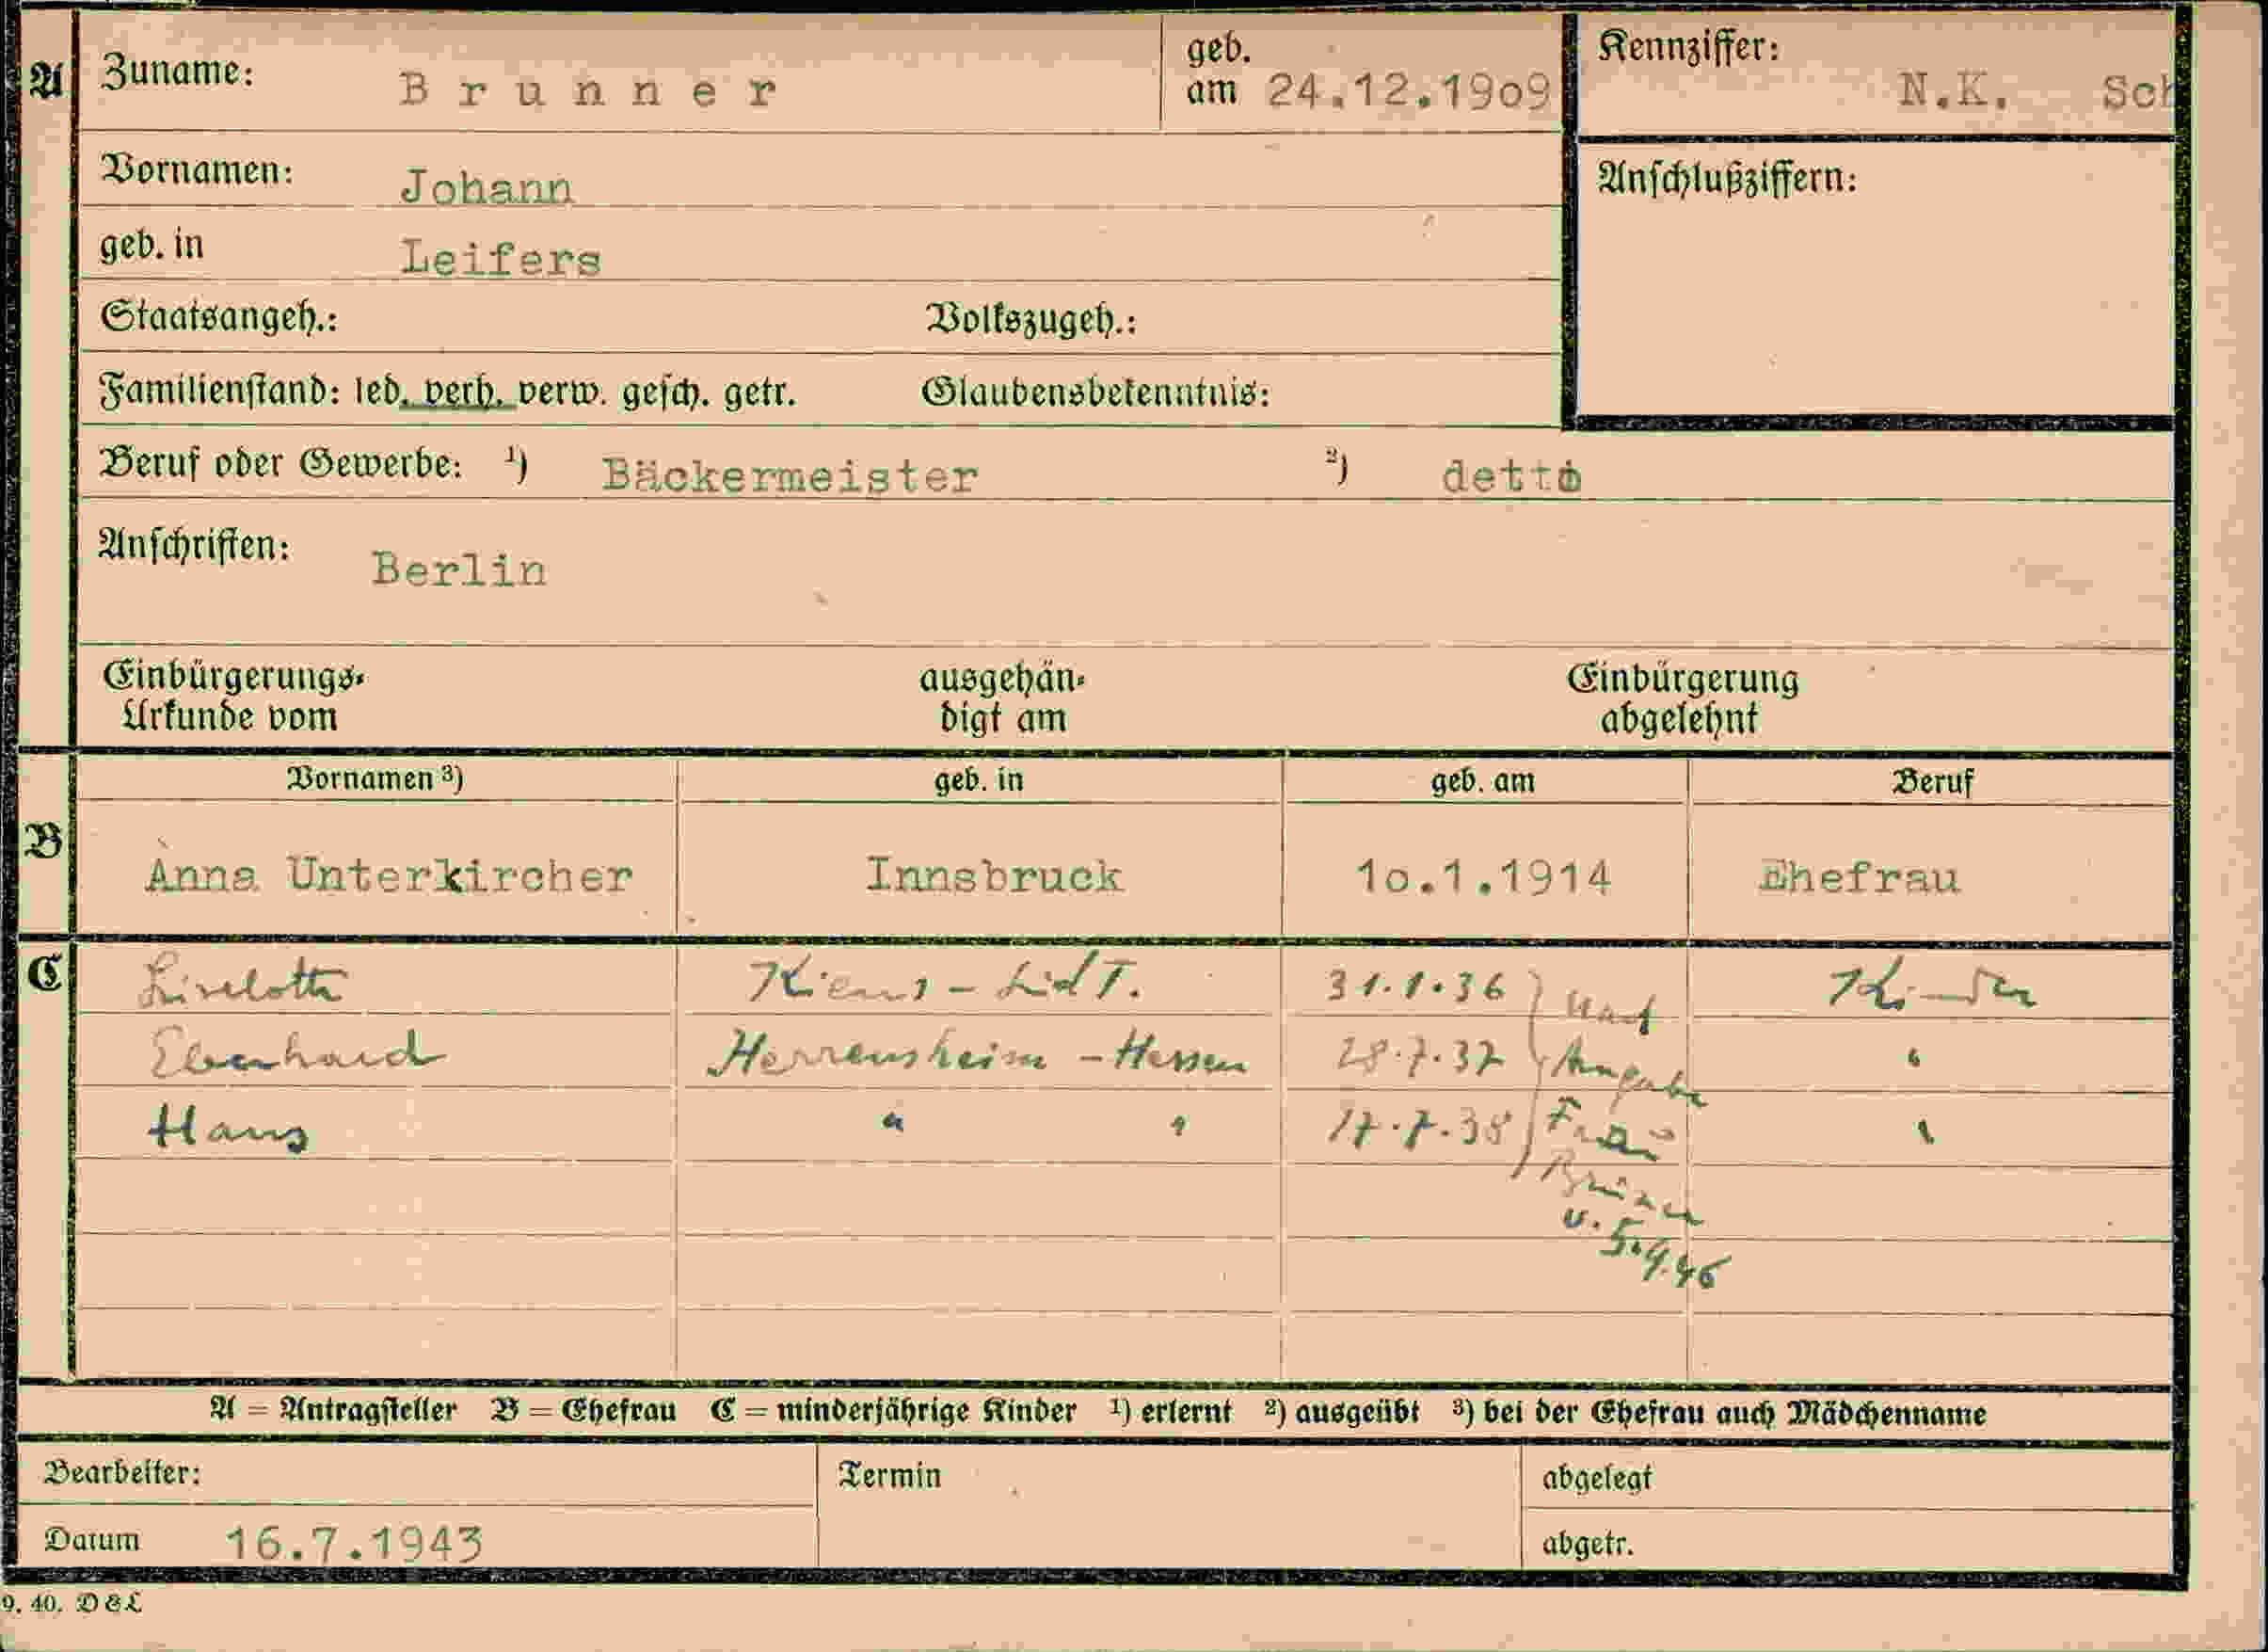 A Zuname: Brunner geb. am 24.12.1909 Kennziffer: N.K. Sch
Vornamen: Johann Anschlußziffern:
geb. in Leifers
Staatsangeh.: Volkszugeh.:
Familienstand: led. verh. verw. gesch. getr. Glaubensbekenntnis:
Beruf oder Gewerbe: ¹) Bäckermeister ²) detto
Anschriften: Berlin
Einbürgerungs- ausgehän- Einbürgerung
Urkunde vom digt am abgelehnt
Vornamen ³) geb. in geb. am Beruf
B Anna Unterkircher Innsbruck 10.1.1914 Ehefrau
C Liselotte Kiens - Süd T. 31.1.36 Kinder
Eberhard Herrensheim - Hessen 28.7.37 "
Hans " " 17.7.38 "
nach
Angabe
Frau
Brunner
v. 5.9.46
A = Antragsteller B = Ehefrau C = minderjährige Kinder ¹) erlernt ²) ausgeübt ³) bei der Ehefrau auch Mädchenname
Bearbeiter: Termin abgelegt
Datum 16.7.1943 abgetr.
9. 40. D & L